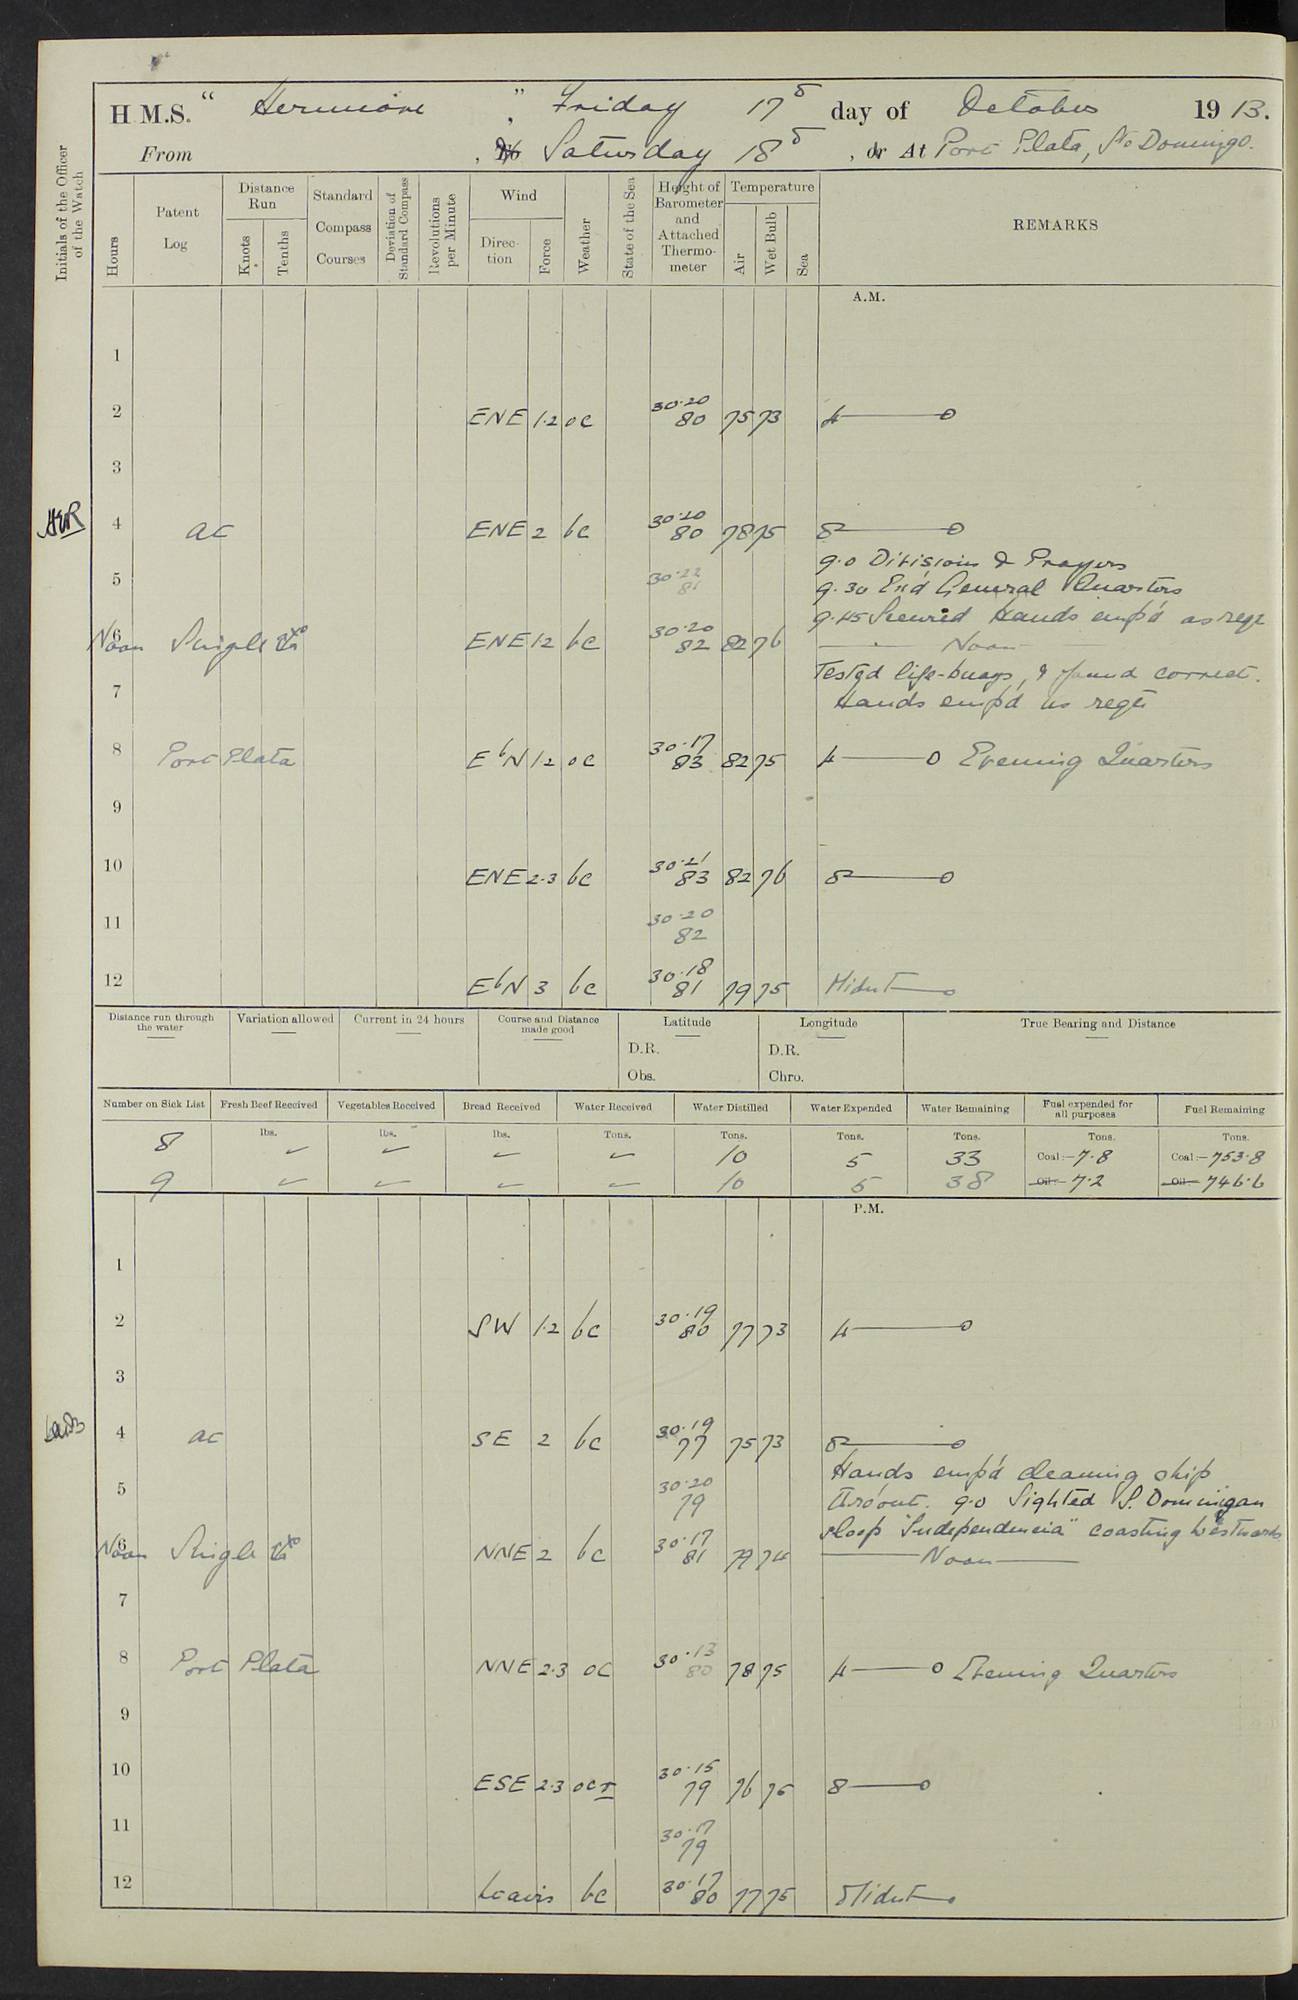 H M.S. " Hermione " , Friday 17th day of October 19 13.
From , Saturday 18th , or At Port Plata, Sto Domingo.
Initials of the Officer of the Watch
Hours
Patent Log
Distance Run
Knots
Tenths
Standard Compass Courses
Deviation of Standard Compass
Revolutions per Minute
Wind
Direction
Force
Weather
State of the Sea
Height of Barometer and Attached Thermometer
Temperature
Air
Wet Bulb
Sea
REMARKS
A.M.
1
2 ENE 1.2 oc 30.20 80 75 73 4 —— 0
3
4 ac ENE 2 bc 30.20 80 78 75 8 —— 0
9.0 Divisions & Prayers
5 30.22 81 9.30 Ex'd General Quarters
9.45 Secured Hands emp'd as reqr
6 Noon Single ENE 1.2 bc 30.20 82 82 76 — Noon —
Tested life-buoys, & found correct.
7 Hands emp'd as reqd
8 Port Plata EbN 1.2 oc 30.17 83 82 75 4 —— 0 Evening Quarters
9
10 ENE 2.3 bc 30.21 83 82 76 8 —— 0
11 30.20 82
12 EbN 3 bc 30.18 81 79 75 Midnt ——
Distance run through the water
Variation allowed
Current in 24 hours
Course and Distance made good
Latitude
D.R.
Obs.
Longitude
D.R.
Chro.
True Bearing and Distance
Number on Sick List
Fresh Beef Received
Vegetables Received
Bread Received
Water Received
Water Distilled
Water Expended
Water Remaining
Fuel expended for all purposes
Fuel Remaining
lbs. lbs. lbs. Tons. Tons. Tons. Tons. Tons. Tons.
8 ✓ ✓ ✓ ✓ 10 5 33 Coal:— 7.8 Coal:— 753.8
9 ✓ ✓ ✓ ✓ 10 5 38 Oil:— 7.2 Oil— 746.6
P.M.
1
2 SW 1.2 bc 30.19 80 77 73 4 —— 0
3
4 ac SE 2 bc 30.19 77 75 73 8 —— 0
Hands emp'd cleaning ship
5 30.20 79 thro'out. 9.0 Sighted S. Domingan
sloop "Independencia" coasting westwards
6 Noon Single NNE 2 bc 30.17 81 79 74 —— Noon ——
7
8 Port Plata NNE 2.3 oc 30.13 80 78 75 4 —— 0 Evening Quarters
9
10 ESE 2.3 ocr 30.15 79 76 75 8 —— 0
11 30.17 79
12 bc 30.17 80 77 75 Midnt —